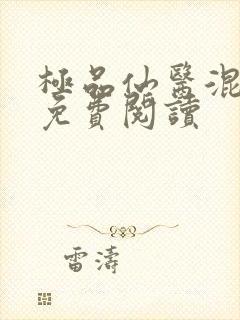 極品仙醫混
免費閱讀
雷濤